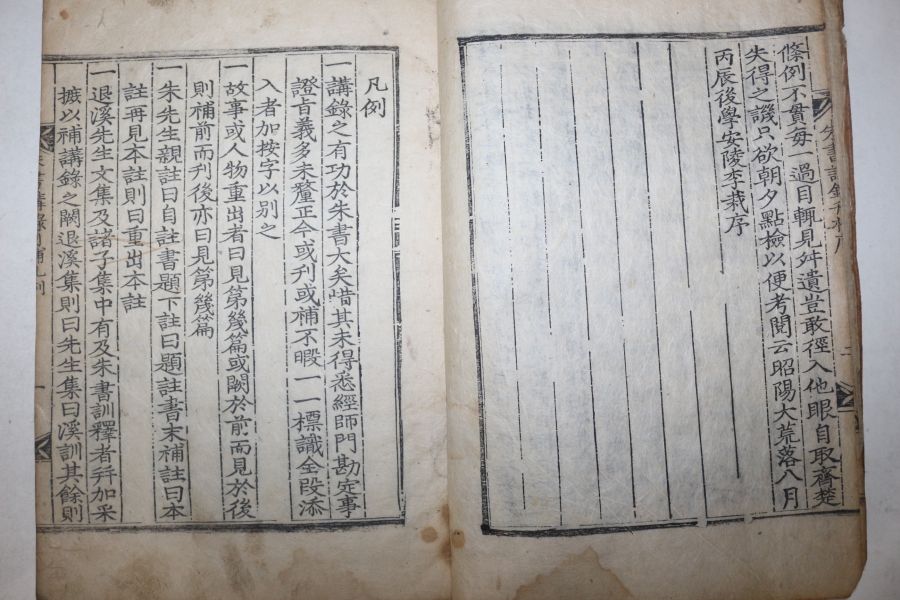 條例不貫每一過目輒見舛遺豈敢徑入他眼自取齊楚
失得之譏只欲朝夕點檢以便考閱云昭陽大荒落八月
丙辰後學安陵李栽序
凡例
一講錄之有功於朱書大矣惜其未得悉經師門勘定事
證旨義多未釐正今或刊或補不暇一一標識全段添
入者加按字以別之
一故事或人物重出者曰見第幾篇或闕於前而見於後
則補前而刊後亦曰見第幾篇
一朱先生親註曰自註書題下註曰題註書末補註曰本
註再見本註則曰重出本註
一退溪先生文集及諸子集中有及朱書訓釋者幷加采
摭以補講錄之闕退溪集則曰先生集曰溪訓其餘則